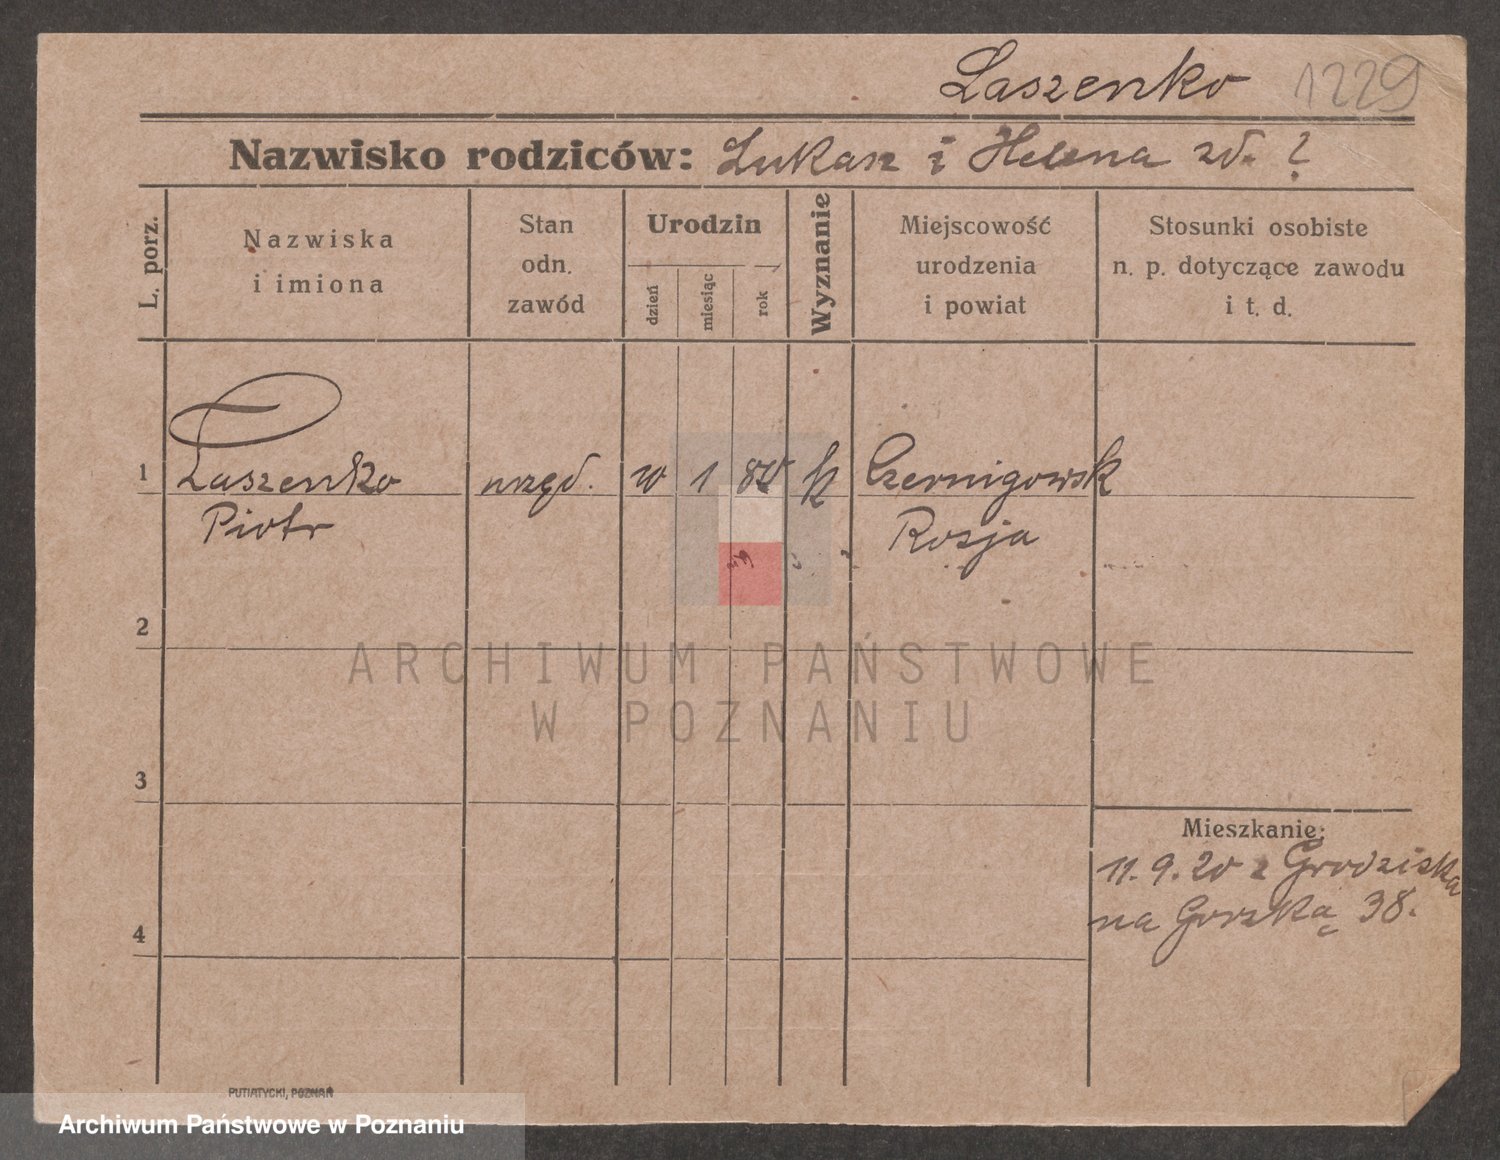 Laszenko 1229
Nazwisko rodziców: Łukasz i Helena zd. ?
L. porz.
Nazwiska
i imiona
Stan
odn.
zawód
Urodzin
dzień
miesiąc
rok
Wyznanie
Miejscowość
urodzenia
i powiat
Stosunki osobiste
n. p. dotyczące zawodu
i t. d.
1 Laszenko urzęd. 1 k Czernigowsk
Piotr Rosja
2
ARCHIWUM PAŃSTWOWE
W POZNANIU
3
Mieszkanie:
11.9.20 z Grodziska
na Gorzką 38.
4
PUTIATYCKI, POZNAŃ
Archiwum Państwowe w Poznaniu